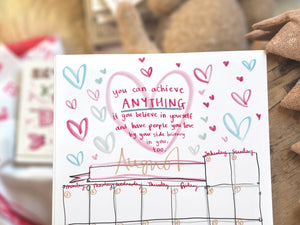 you can achieve
ANYTHING
if you believe in yourself
and have people you love
by your side believing
in you,
too.
August
Saturday Sunday
Monday Tuesday Wednesday Thursday Friday